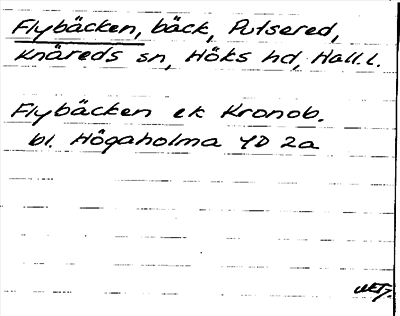 Flybäcken, bäck, Putsered,
Knäreds sn, Höks hd, Hall. l.
Flybäcken ek Kronob.
bl. Högaholma 4D 2a